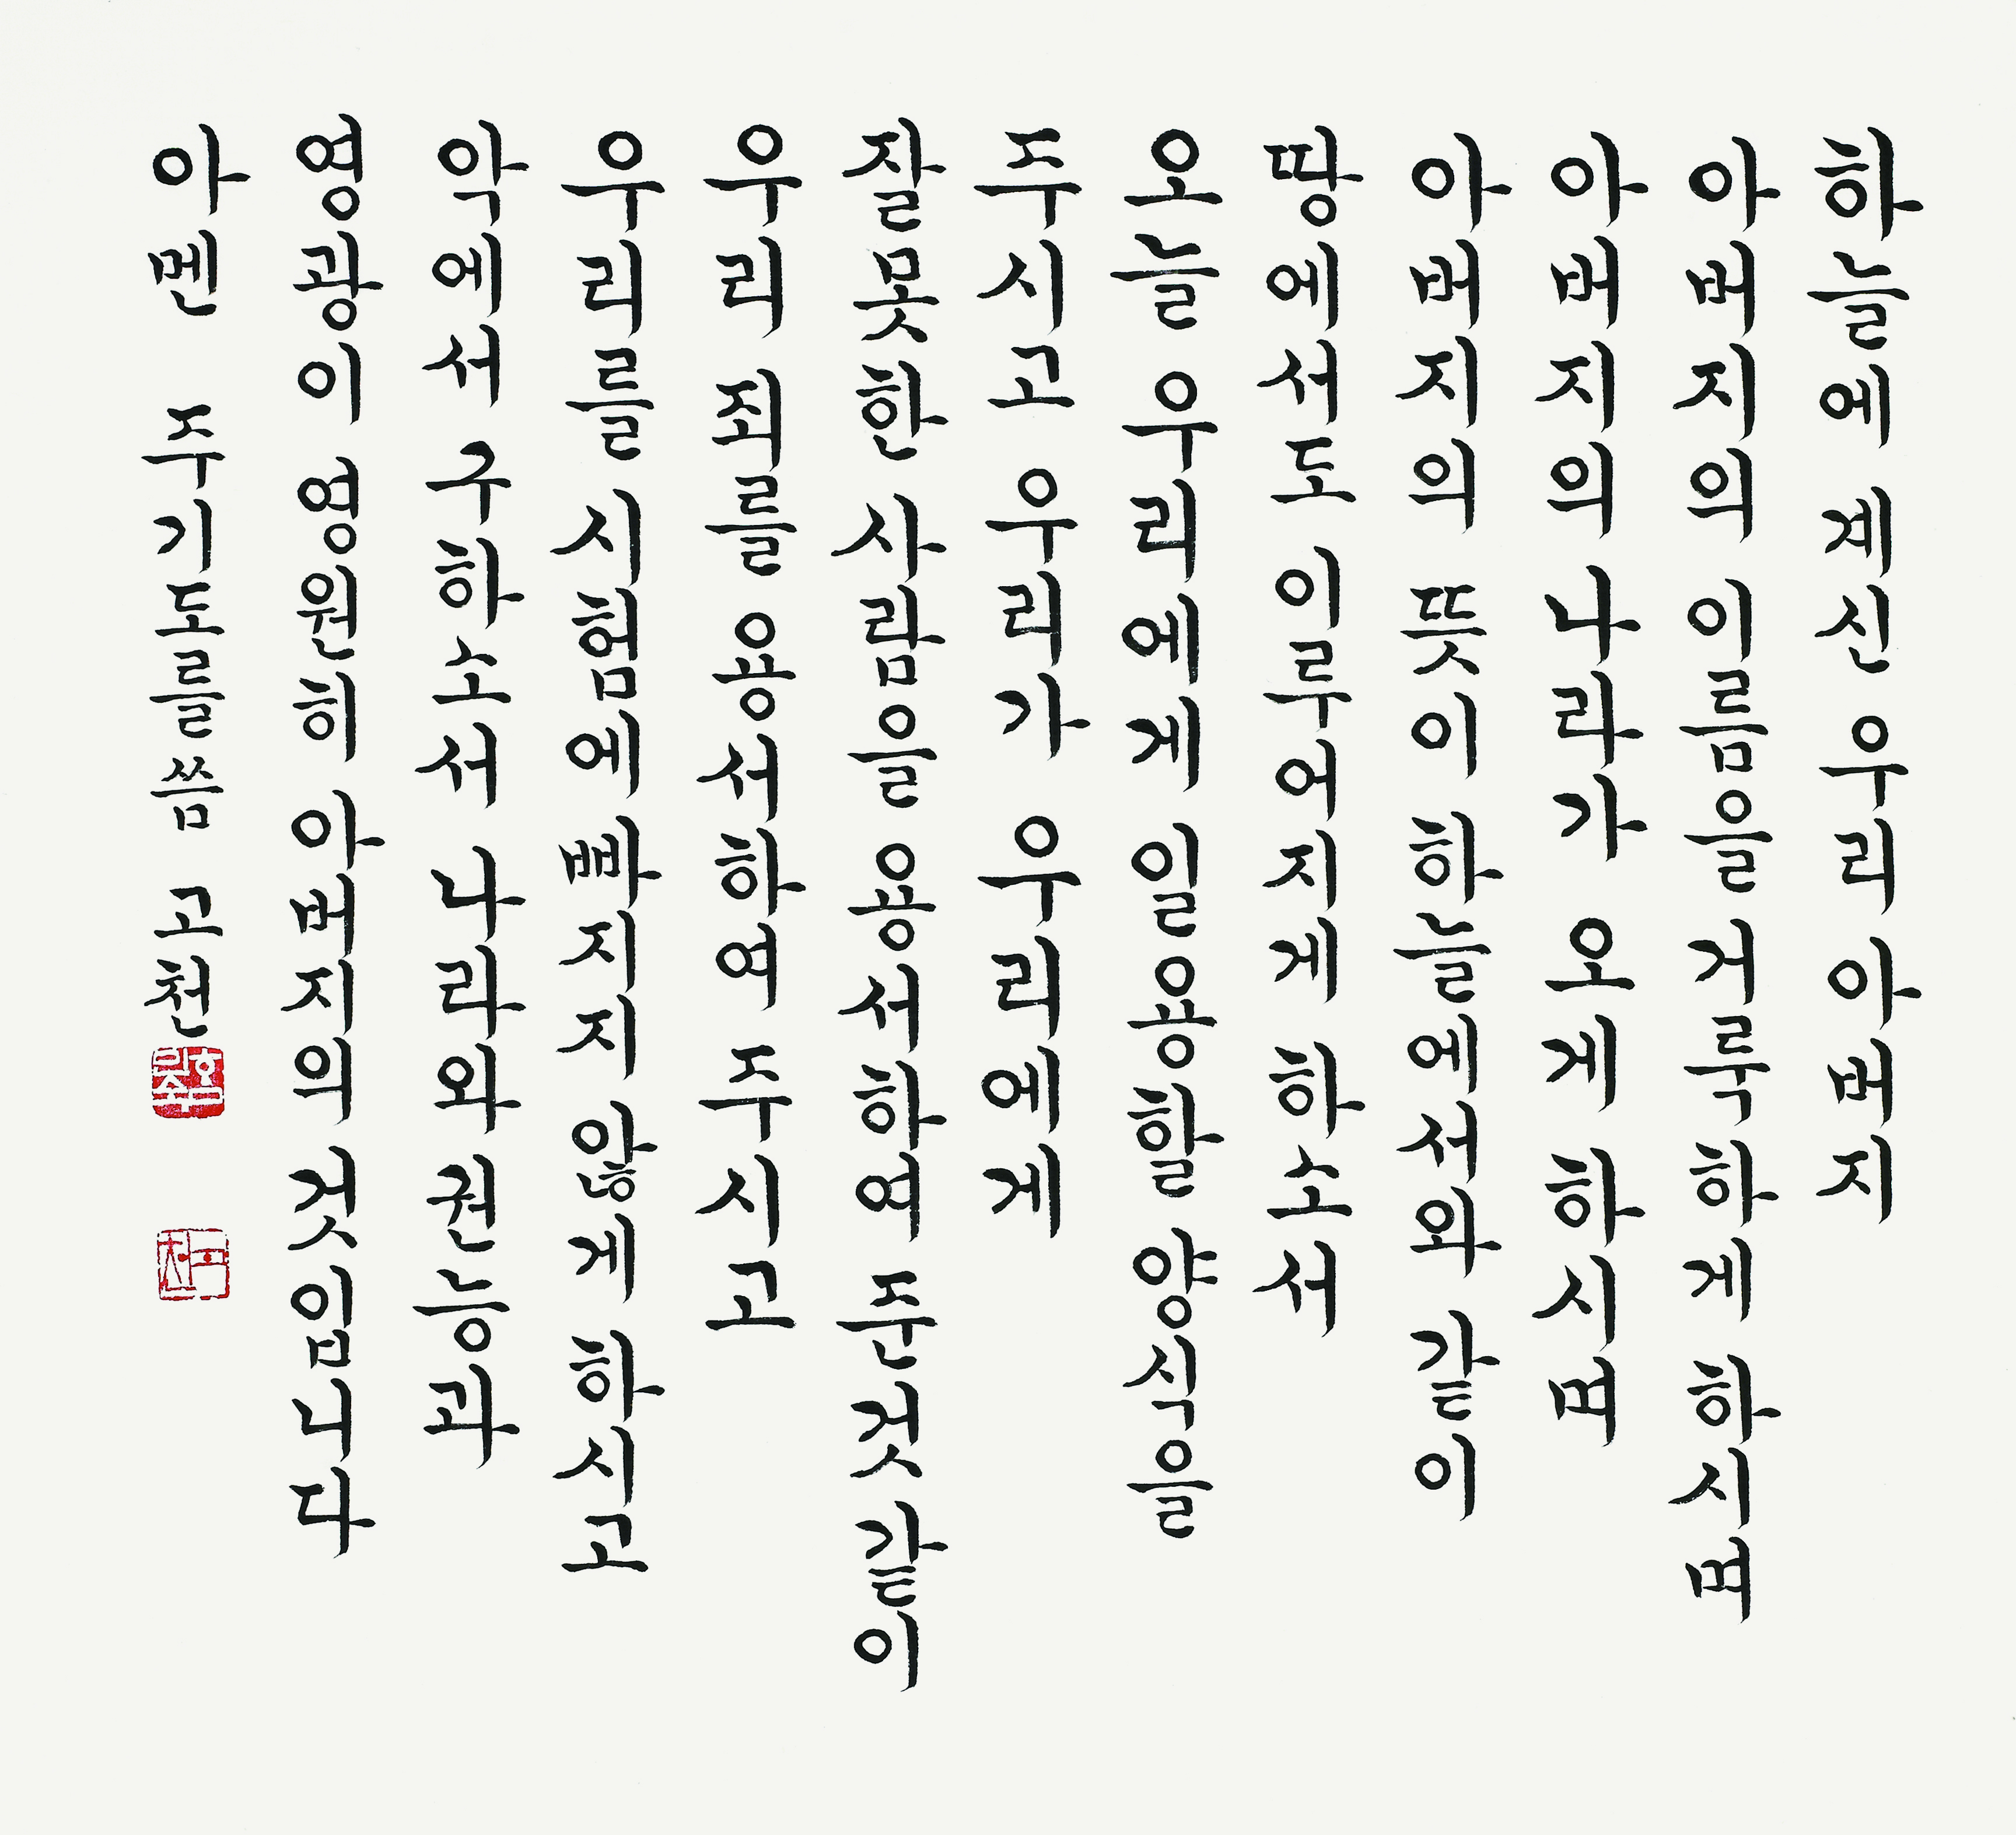 하늘에 계신 우리 아버지
아버지의 이름을 거룩하게 하시며
아버지의 나라가 오게 하시며
아버지의 뜻이 하늘에서와 같이
땅에서도 이루어지게 하소서
오늘 우리에게 일용할 양식을
주시고 우리가 우리에게
잘못한 사람을 용서하여 준것 같이
우리 죄를 용서하여 주시고
우리를 시험에 빠지지 않게 하시고
악에서 구하소서 나라와 권능과
영광이 영원히 아버지의 것입니다
아멘 주기도를 씀 고천